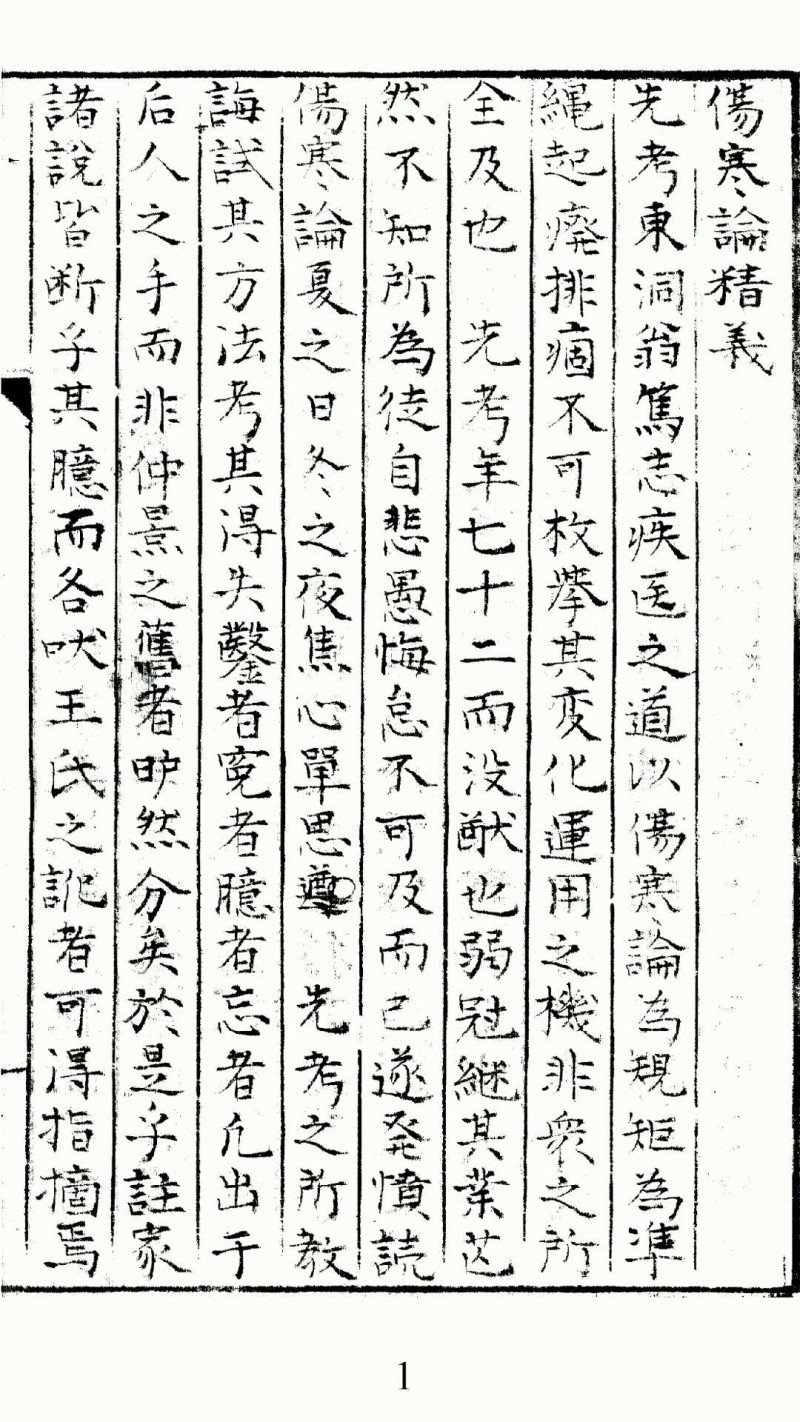 傷寒論精義
先考東洞翁篤志疾医之道以傷寒論為規矩為準
繩起癈排痼不可枚挙其変化運用之機非衆之所
全及也　先考年七十二而没猷也弱冠継其業芒
然不知所為徒自悲愚悔怠不可及而已遂発憤読
傷寒論夏之日冬之夜焦心單思遵　先考之所教
誨試其方法考其得失鑿者寃者臆者忘者凢出于
后人之手而非仲景之舊者昈然分矣於是乎註家
諸説皆断乎其臆而各吠王氏之訛者可得指摘焉
1